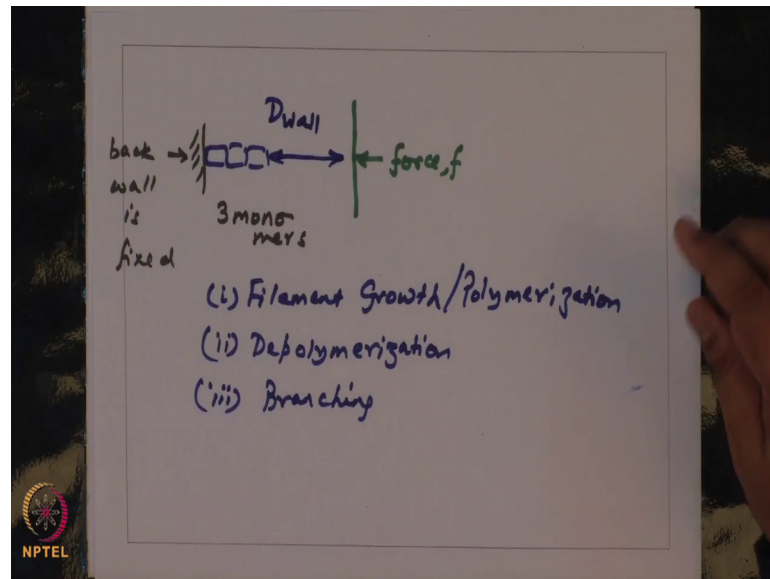 D wall
back → ← force, f
wall
is
fixed
3 mono
mers
(i) Filament Growth/Polymerization
(ii) Depolymerization
(iii) Branching
NPTEL